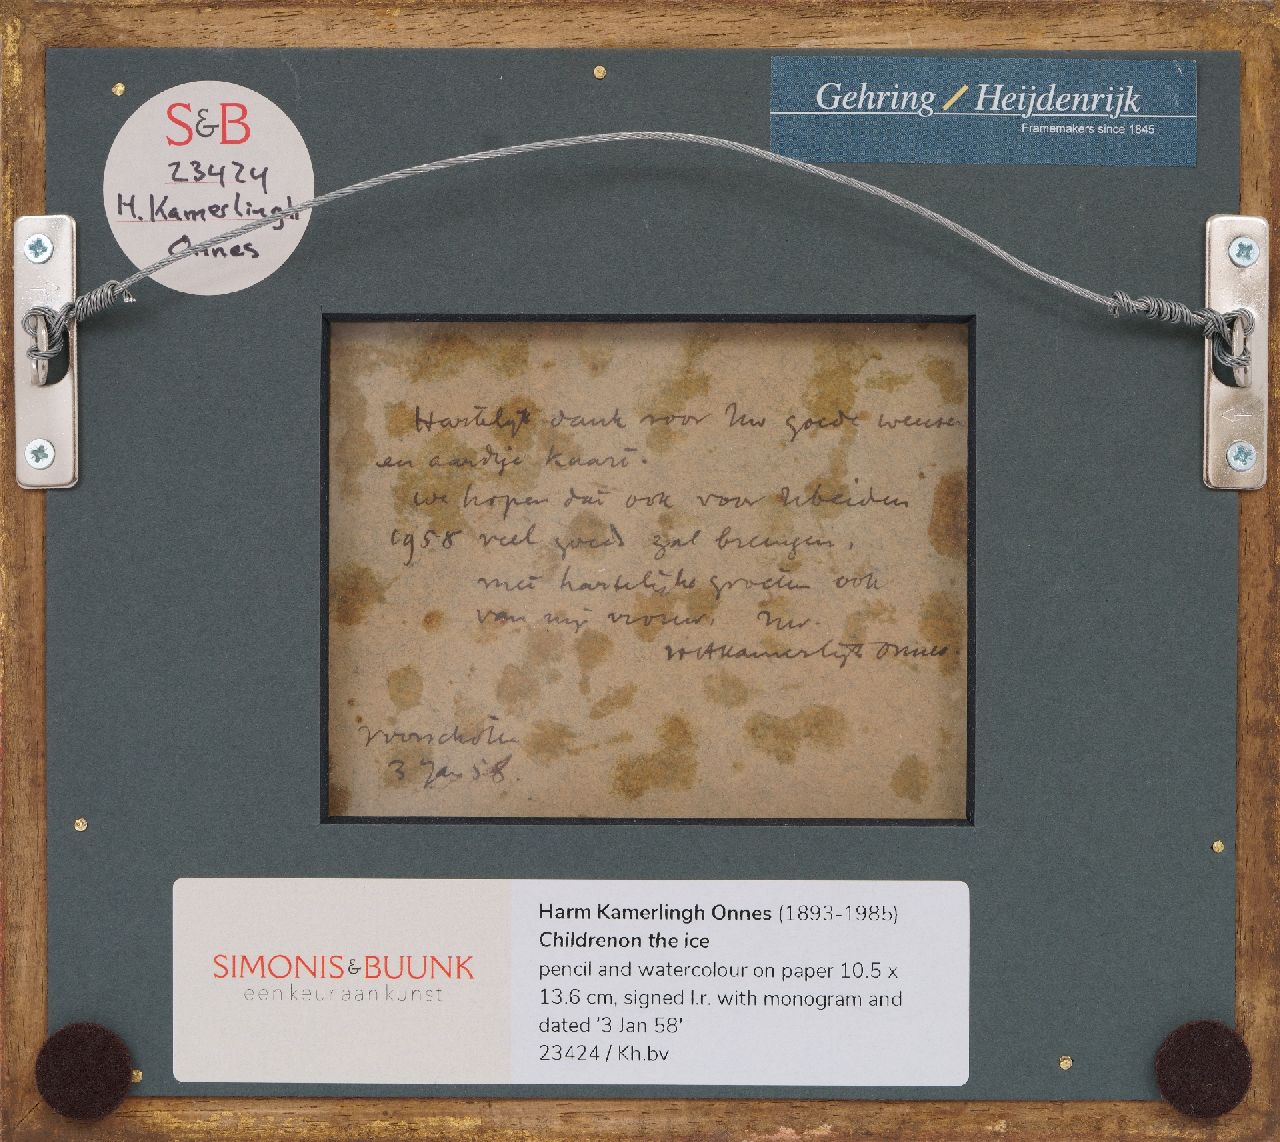 S&B
23424
H. Kamerlingh
Onnes
Gehring / Heijdenrijk
Framemakers since 1845
Hartelijk dank voor Uw goede wensen
en aardije kaart.
we hopen dat ook voor U beiden
1958 veel goeds zal brengen.
met hartelijke groeten ook
van mij vrouw. Uw.
HHKamerlingh Onnes.
Voorschoten
3 Jan 58.
SIMONIS&BUUNK
een keur aan kunst
Harm Kamerlingh Onnes (1893-1985)
Childrenon the ice
pencil and watercolour on paper 10.5 x
13.6 cm, signed l.r. with monogram and
dated '3 Jan 58'
23424 / Kh.bv